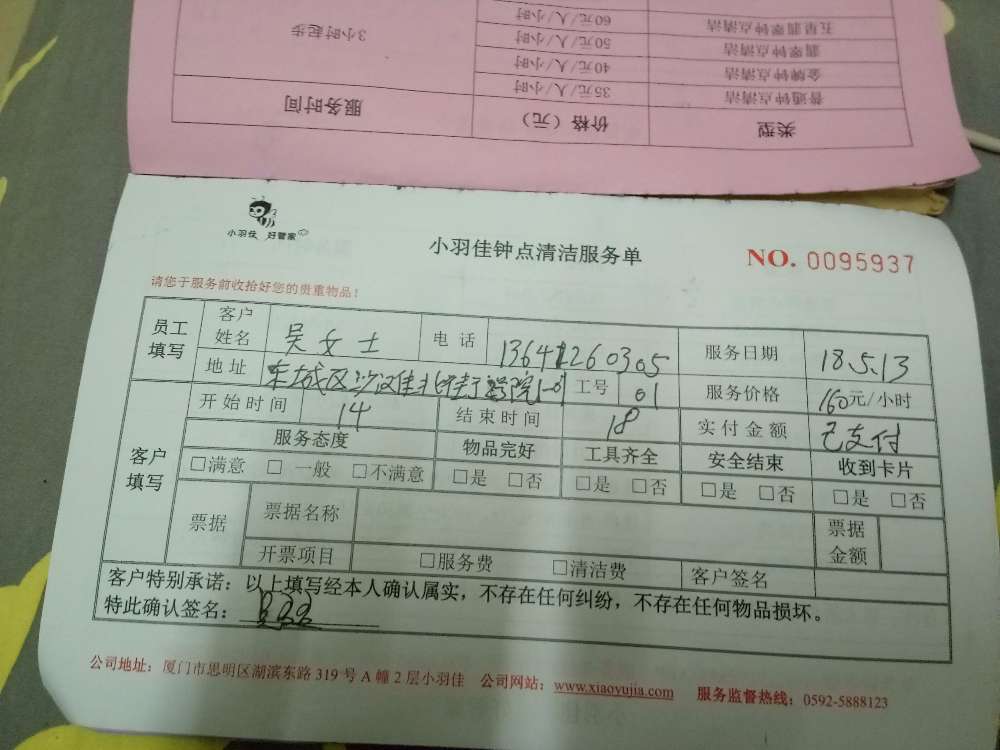 类型 价格（元） 服务时间
普通钟点清洁 35元/人/小时 3小时起步
金牌钟点清洁 40元/人/小时
翡翠钟点清洁 50元/人/小时
五星翡翠钟点清洁 60元/人/小时
小羽佳 好管家
小羽佳钟点清洁服务单
NO. 0095937
请您于服务前收拾好您的贵重物品！
员工填写 客户姓名 吴女士 电话 服务日期 18.5.13
地址 工号 01 服务价格 160元/小时
客户填写 开始时间 14 结束时间 18 实付金额 已支付
服务态度 物品完好 工具齐全 安全结束 收到卡片
□满意 □一般 □不满意 □是 □否 □是 □否 □是 □否 □是 □否
票据 票据名称 票据金额
开票项目 □服务费 □清洁费 客户签名
客户特别承诺：以上填写经本人确认属实，不存在任何纠纷，不存在任何物品损坏。
特此确认签名：
公司地址：厦门市思明区湖滨东路 319 号 A 幢 2 层小羽佳 公司网站：www.xiaoyujia.com 服务监督热线：0592-5888123